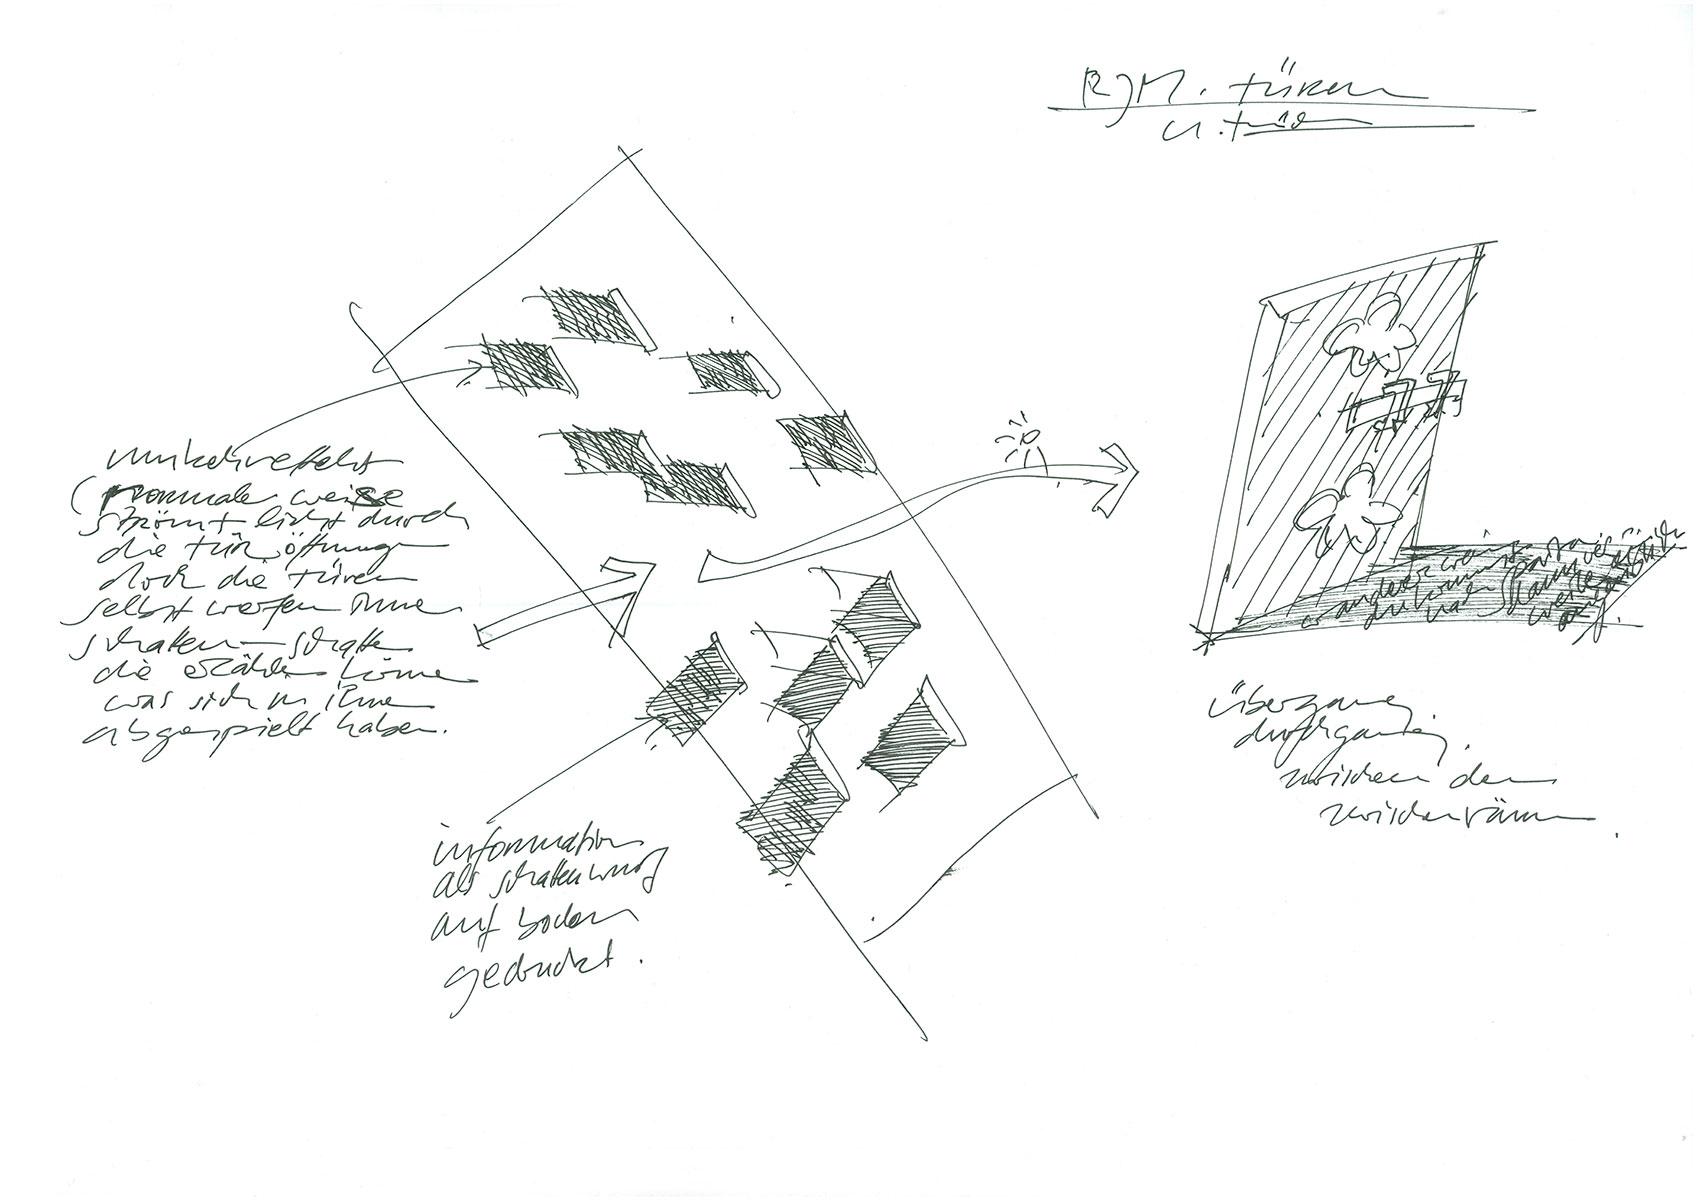 RJM. türen
umkehreffekt
(normaler weise
strömt licht durch
die tür öffnungen
doch die türen
selbst werfen ihre
schatten – schatten
die erzählen können
was sich in ihnen
abgespielt haben.
information
als schattenwurf
auf boden
gedruckt.
übergang
durchgang
zwischen den
zwischenräumen.